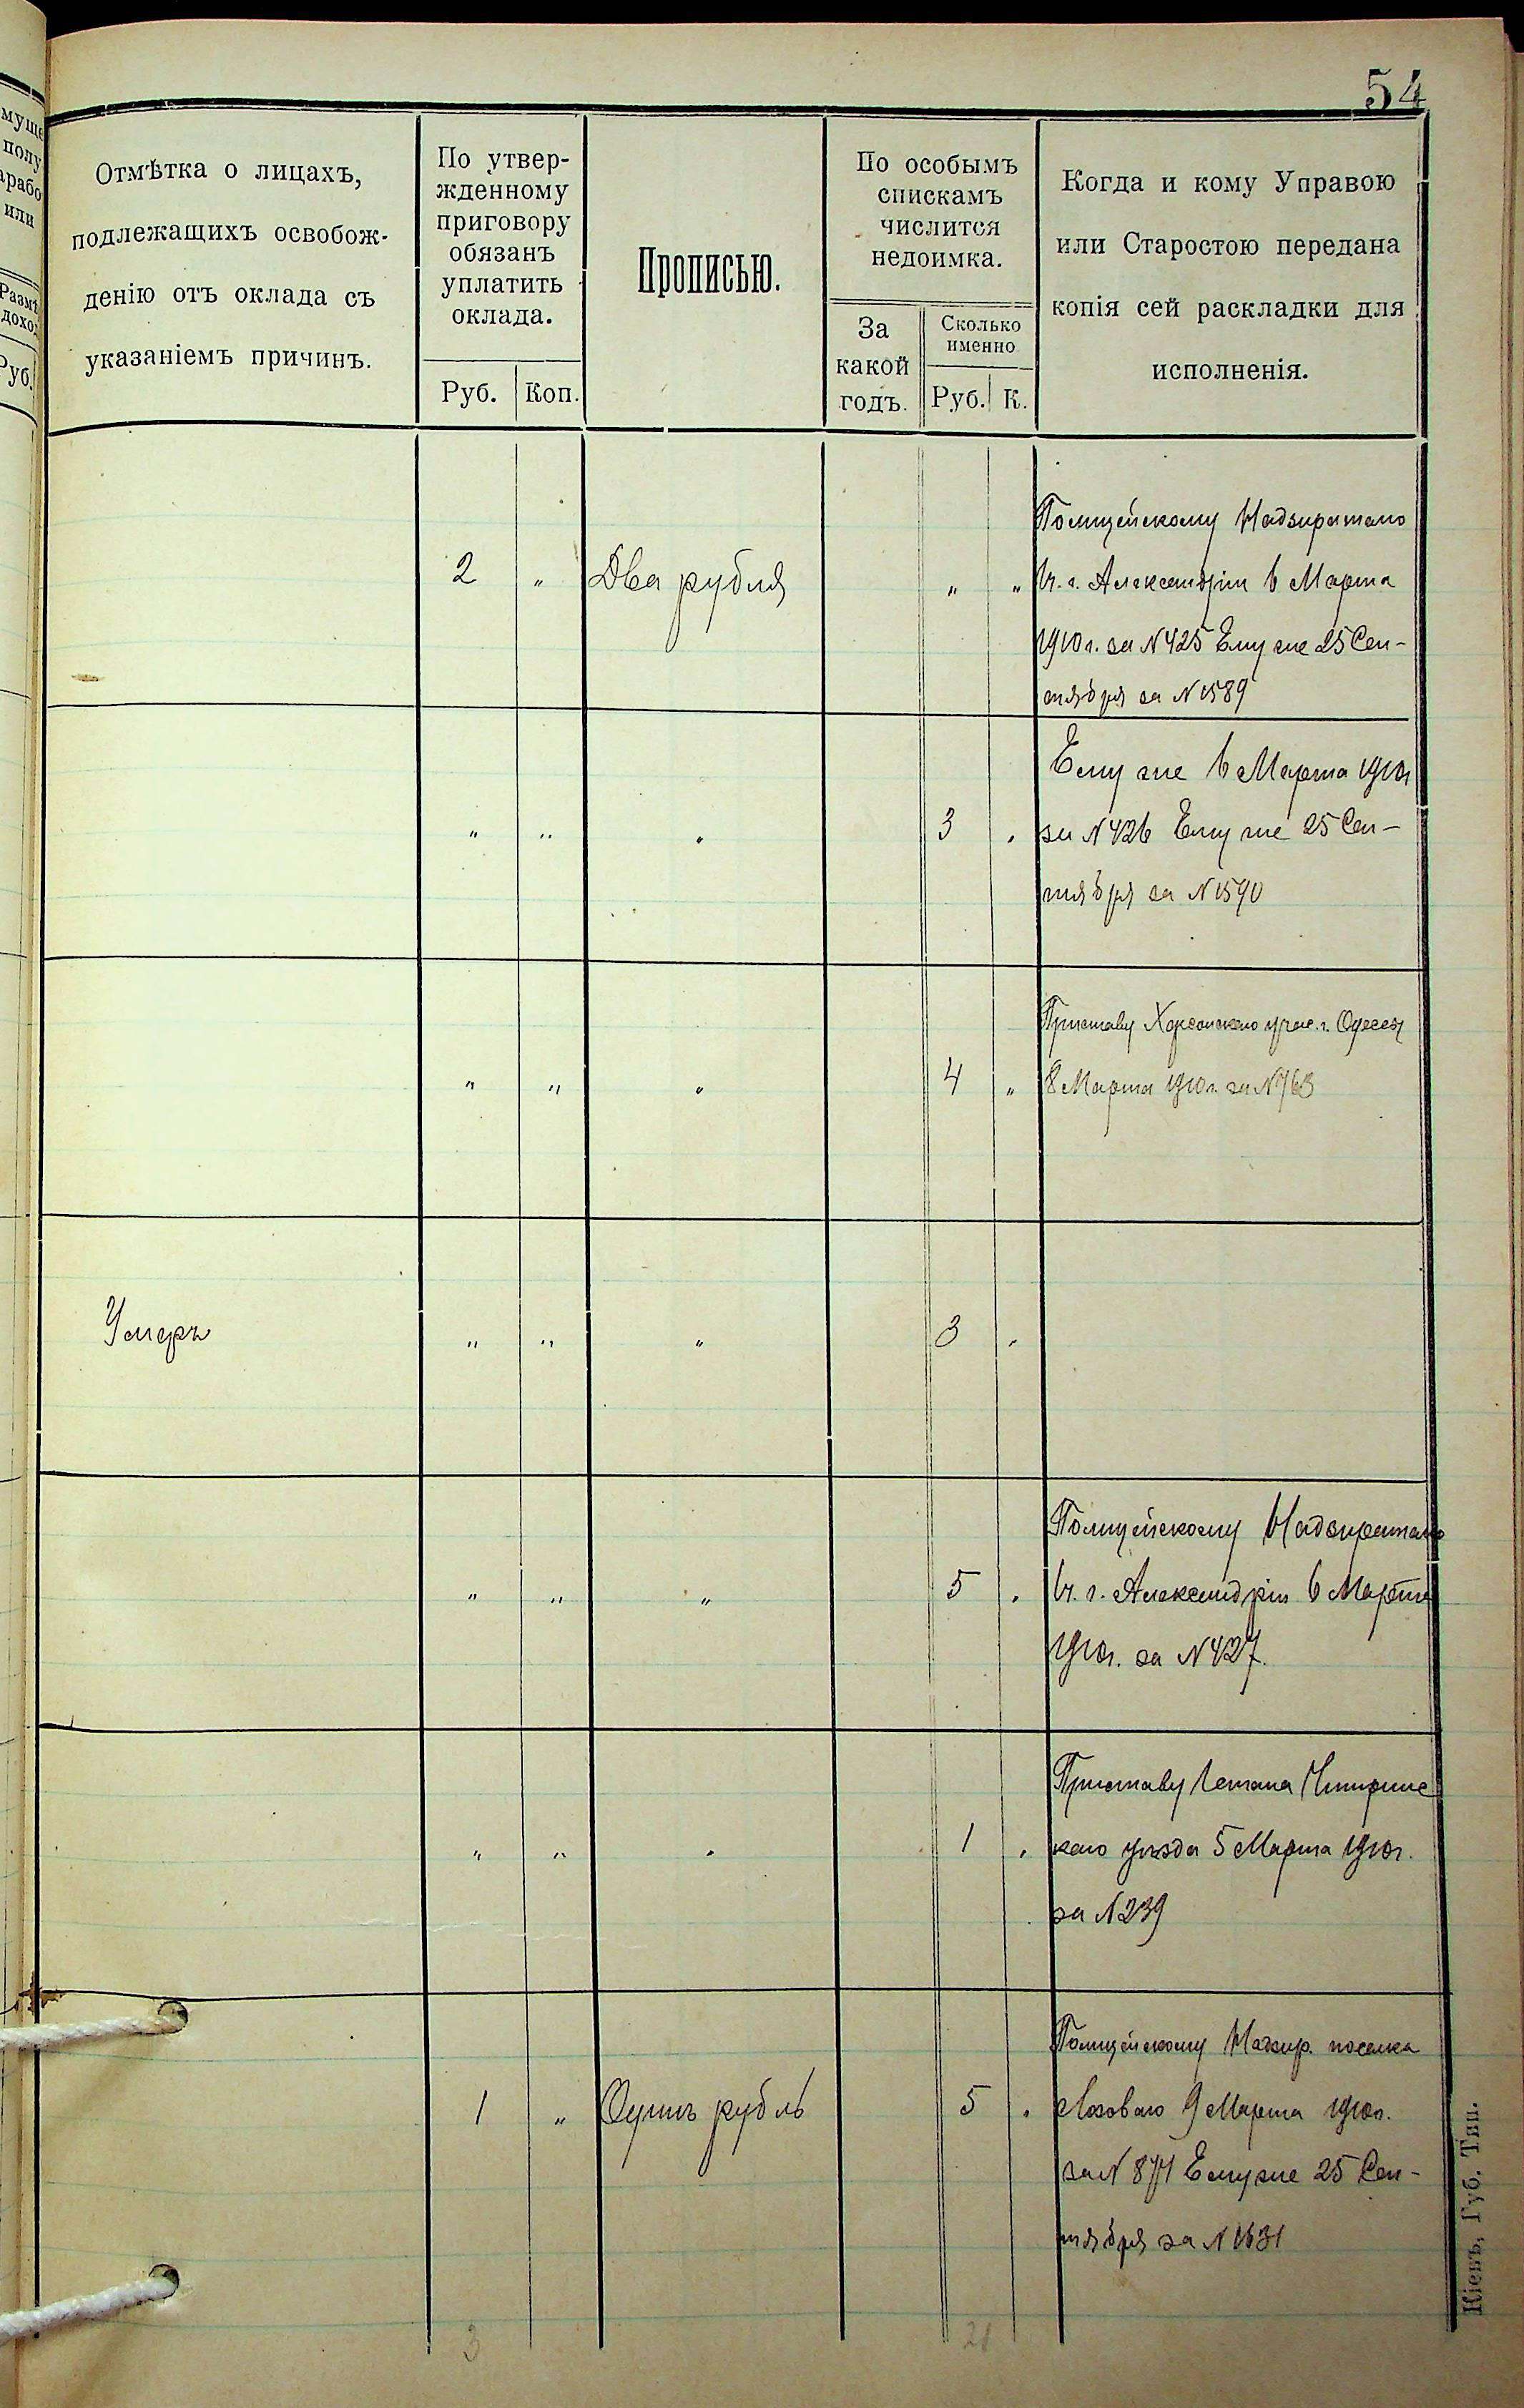 54
Отмѣтка о лицахъ,
подлежащихъ освобож-
денію отъ оклада съ
указаніемъ причинъ.
По утвер-
жденному
приговору
обязанъ
уплатить
оклада.
Руб. Коп.
Прописью.
По особымъ
спискамъ
числится
недоимка.
За
какой
годъ.
Сколько
именно
Руб. К.
Когда и кому Управою
или Старостою передана
копія сей раскладки для
исполненія.
муще
полу
арабо
или
Размѣ
доход
Руб.
2 " Два рубля " "
Полицейскому Надзирателю
г. Александріи 6 Марта
1910 г. за N 425 Ему же 25 Сен-
тября за N 1589
" " " 3 "
Ему же 6 Марта 1910 г
за N 426 Ему же 25 Сен-
тября за N 1590
" " " 4 "
Приставу Херсонскаго учас. г. Одессы
8 Марта 1910 г. за N 763
Умеръ " " " 3 "
" " " 5 "
Полицейскому Надзирателю
г. Александріи 6 Марта
1910 г. за N 427.
" " " 1 "
Приставу 1 стана Чигиринс
каго уѣзда 5 Марта 1910 г.
за N 239
1 " Одинъ рубль 5 "
Полицейскому Надзир. поселка
Лозоваго 9 Марта 1910 г.
за N 871 Ему же 25 Сен-
тября за N 1631
3 21
Кіевъ, Губ. Тип.